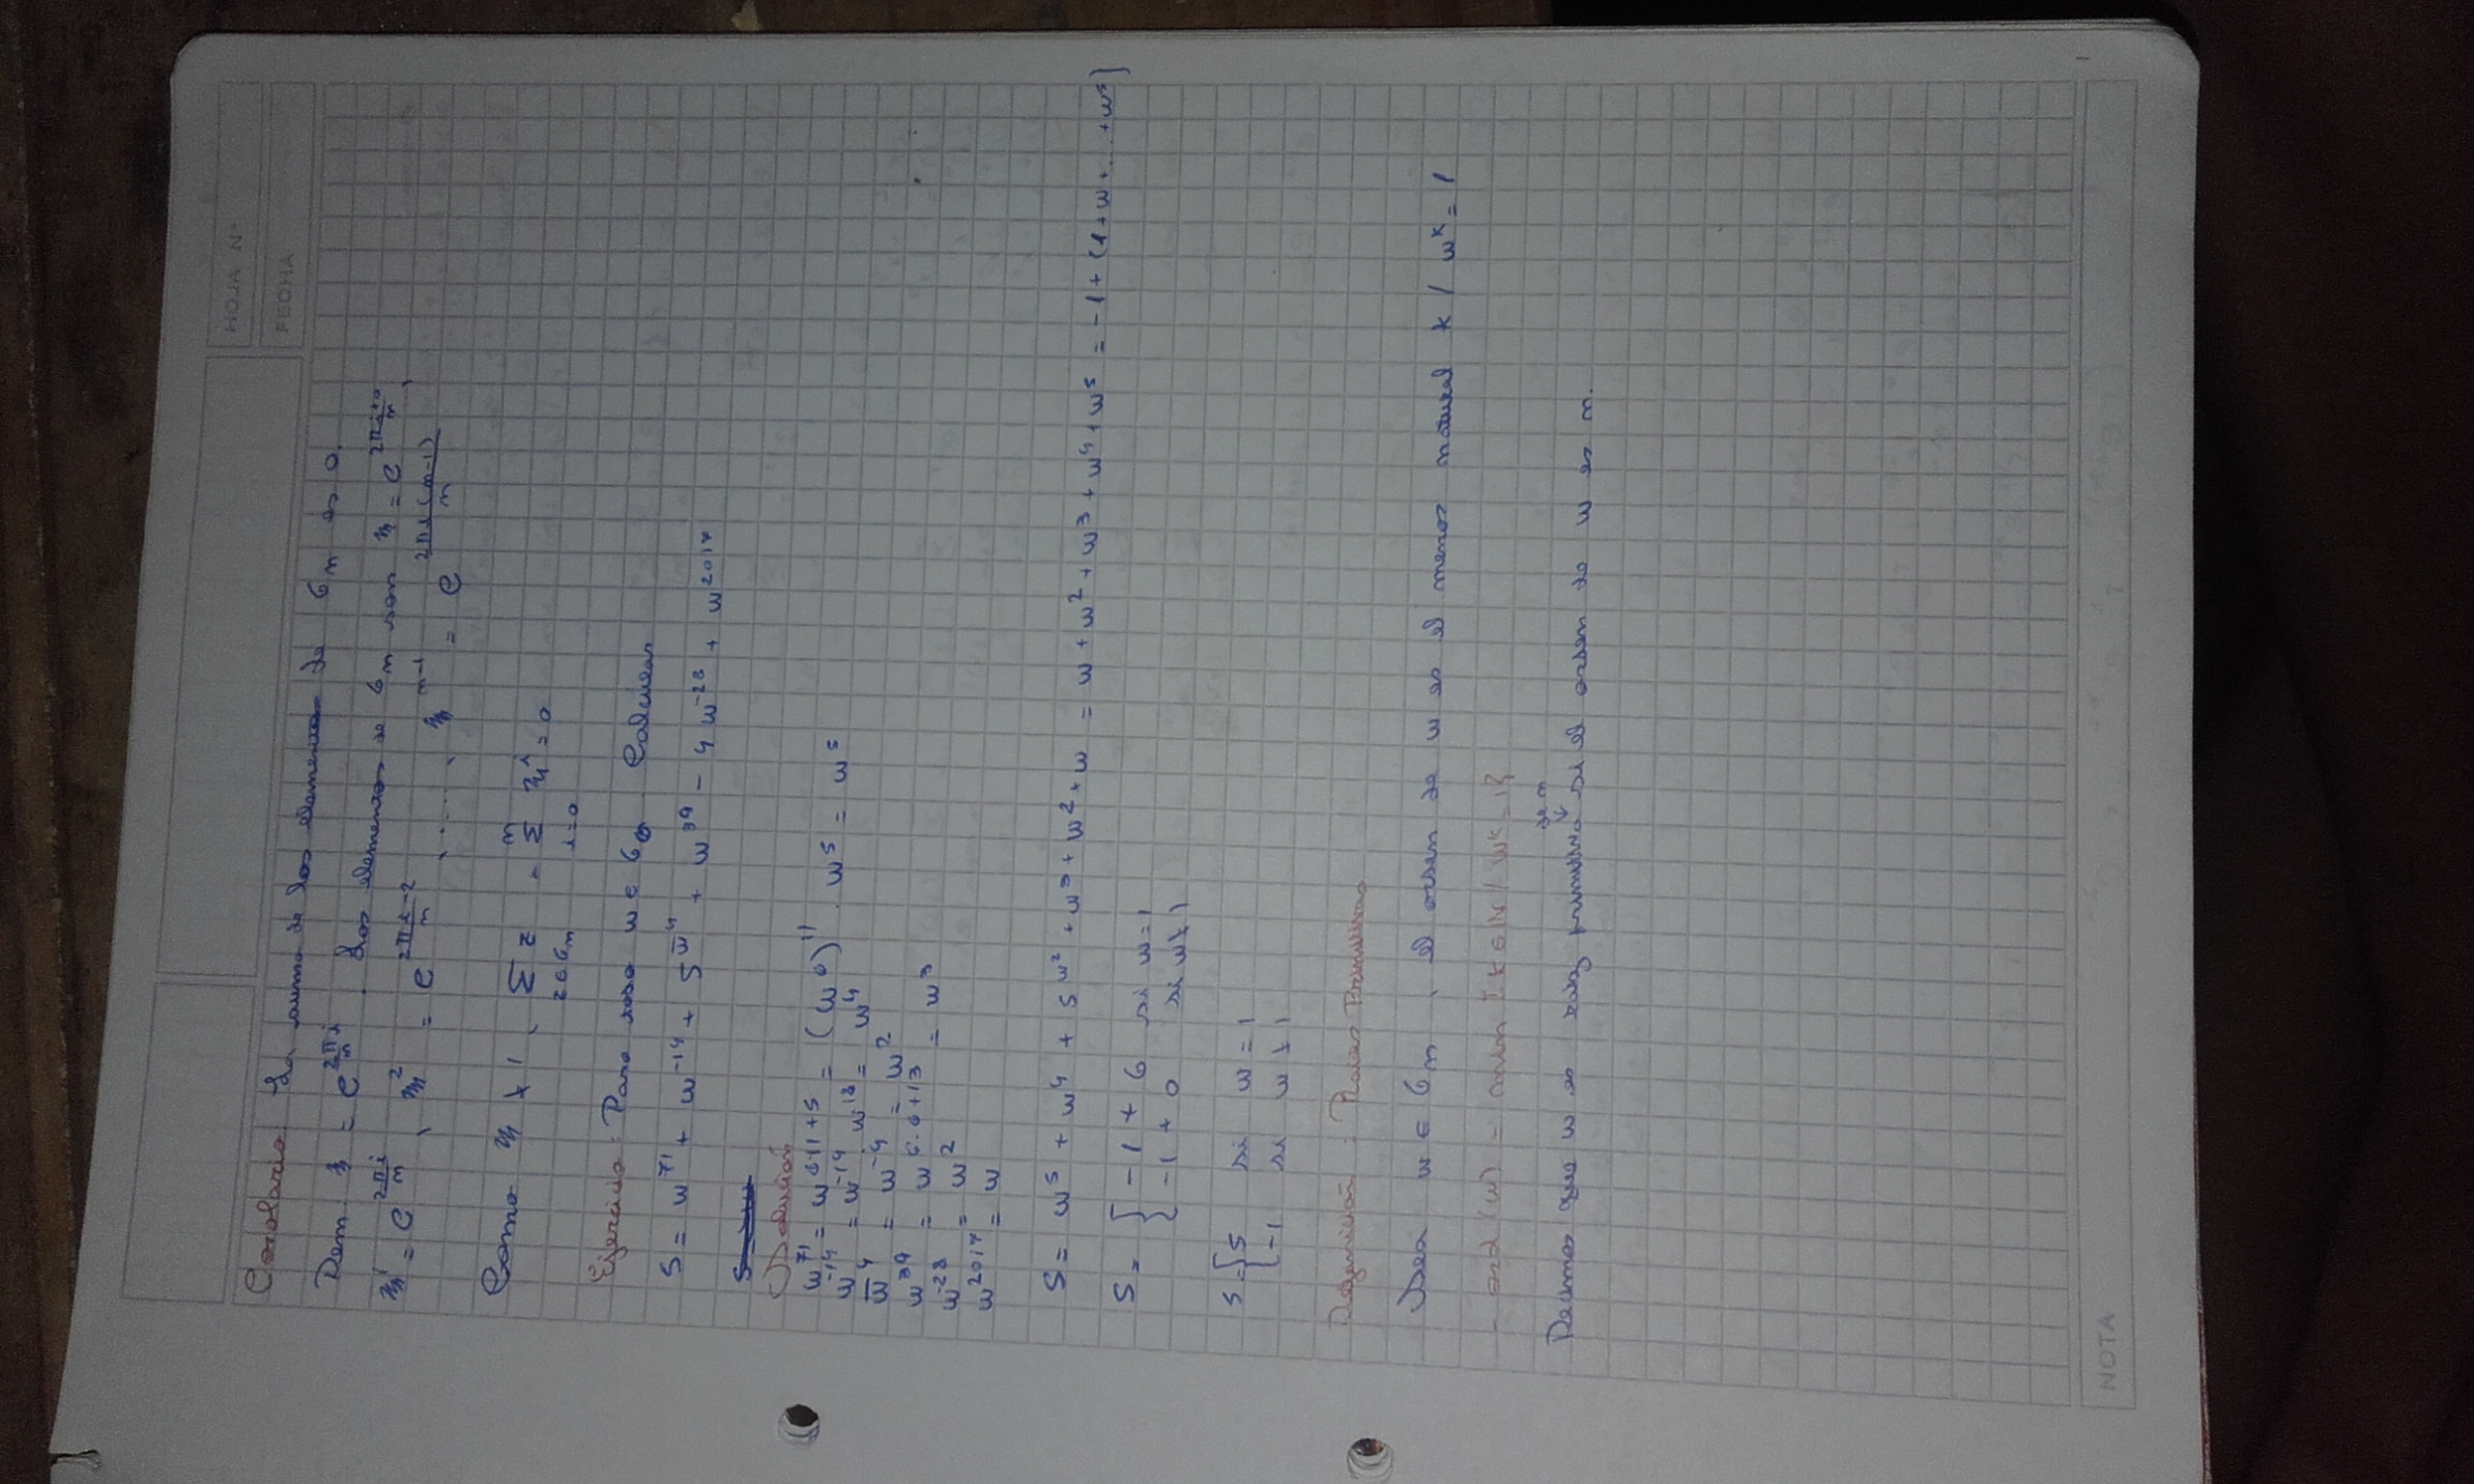 HOJA N°
FECHA
Corolario: La suma de los elementos de Gn es 0.
Dem. ξ = e^(2πi/n). Los elementos de Gn son ξ⁰ = e^(2πi·0/n),
ξ¹ = e^(2πi/n), ξ² = e^(2πi·2/n), ....., ξ^(n-1) = e^(2πi(n-1)/n)
Como ξ ≠ 1, Σ_(z∈Gn) z = Σ_(i=0)^n ξ^i = 0
Ejercicio: Para toda w ∈ G6. Calcular
S = w^71 + w^-14 + 5w̄^4 + w^39 - 4w^-28 + w^2017
Solución
w^71 = w^(6·11+5) = (w^6)^11 · w^5 = w^5
w^-14 = w^-14 · w^18 = w^4
w̄^4 = w^-4 = w^2
w^39 = w^(6·6+13) = w^3
w^-28 = w^2
w^2017 = w
S = w^5 + w^4 + 5w^2 + w^3 + w^2 + w = w + w^2 + w^3 + w^4 + w^5 = -1 + (1+w+...+w^5)
S = { -1 + 6 si w = 1
{ -1 + 0 si w ≠ 1
S = { 5 si w = 1
{ -1 si w ≠ 1
Definición: Raíces Primitivas
Sea w ∈ Gn, el orden de w es el menor natural k / w^k = 1
- ord (w) = min {k ∈ N / w^k = 1}
de n
↓
Decimos que w es raíz primitiva si el orden de w es n.
NOTA